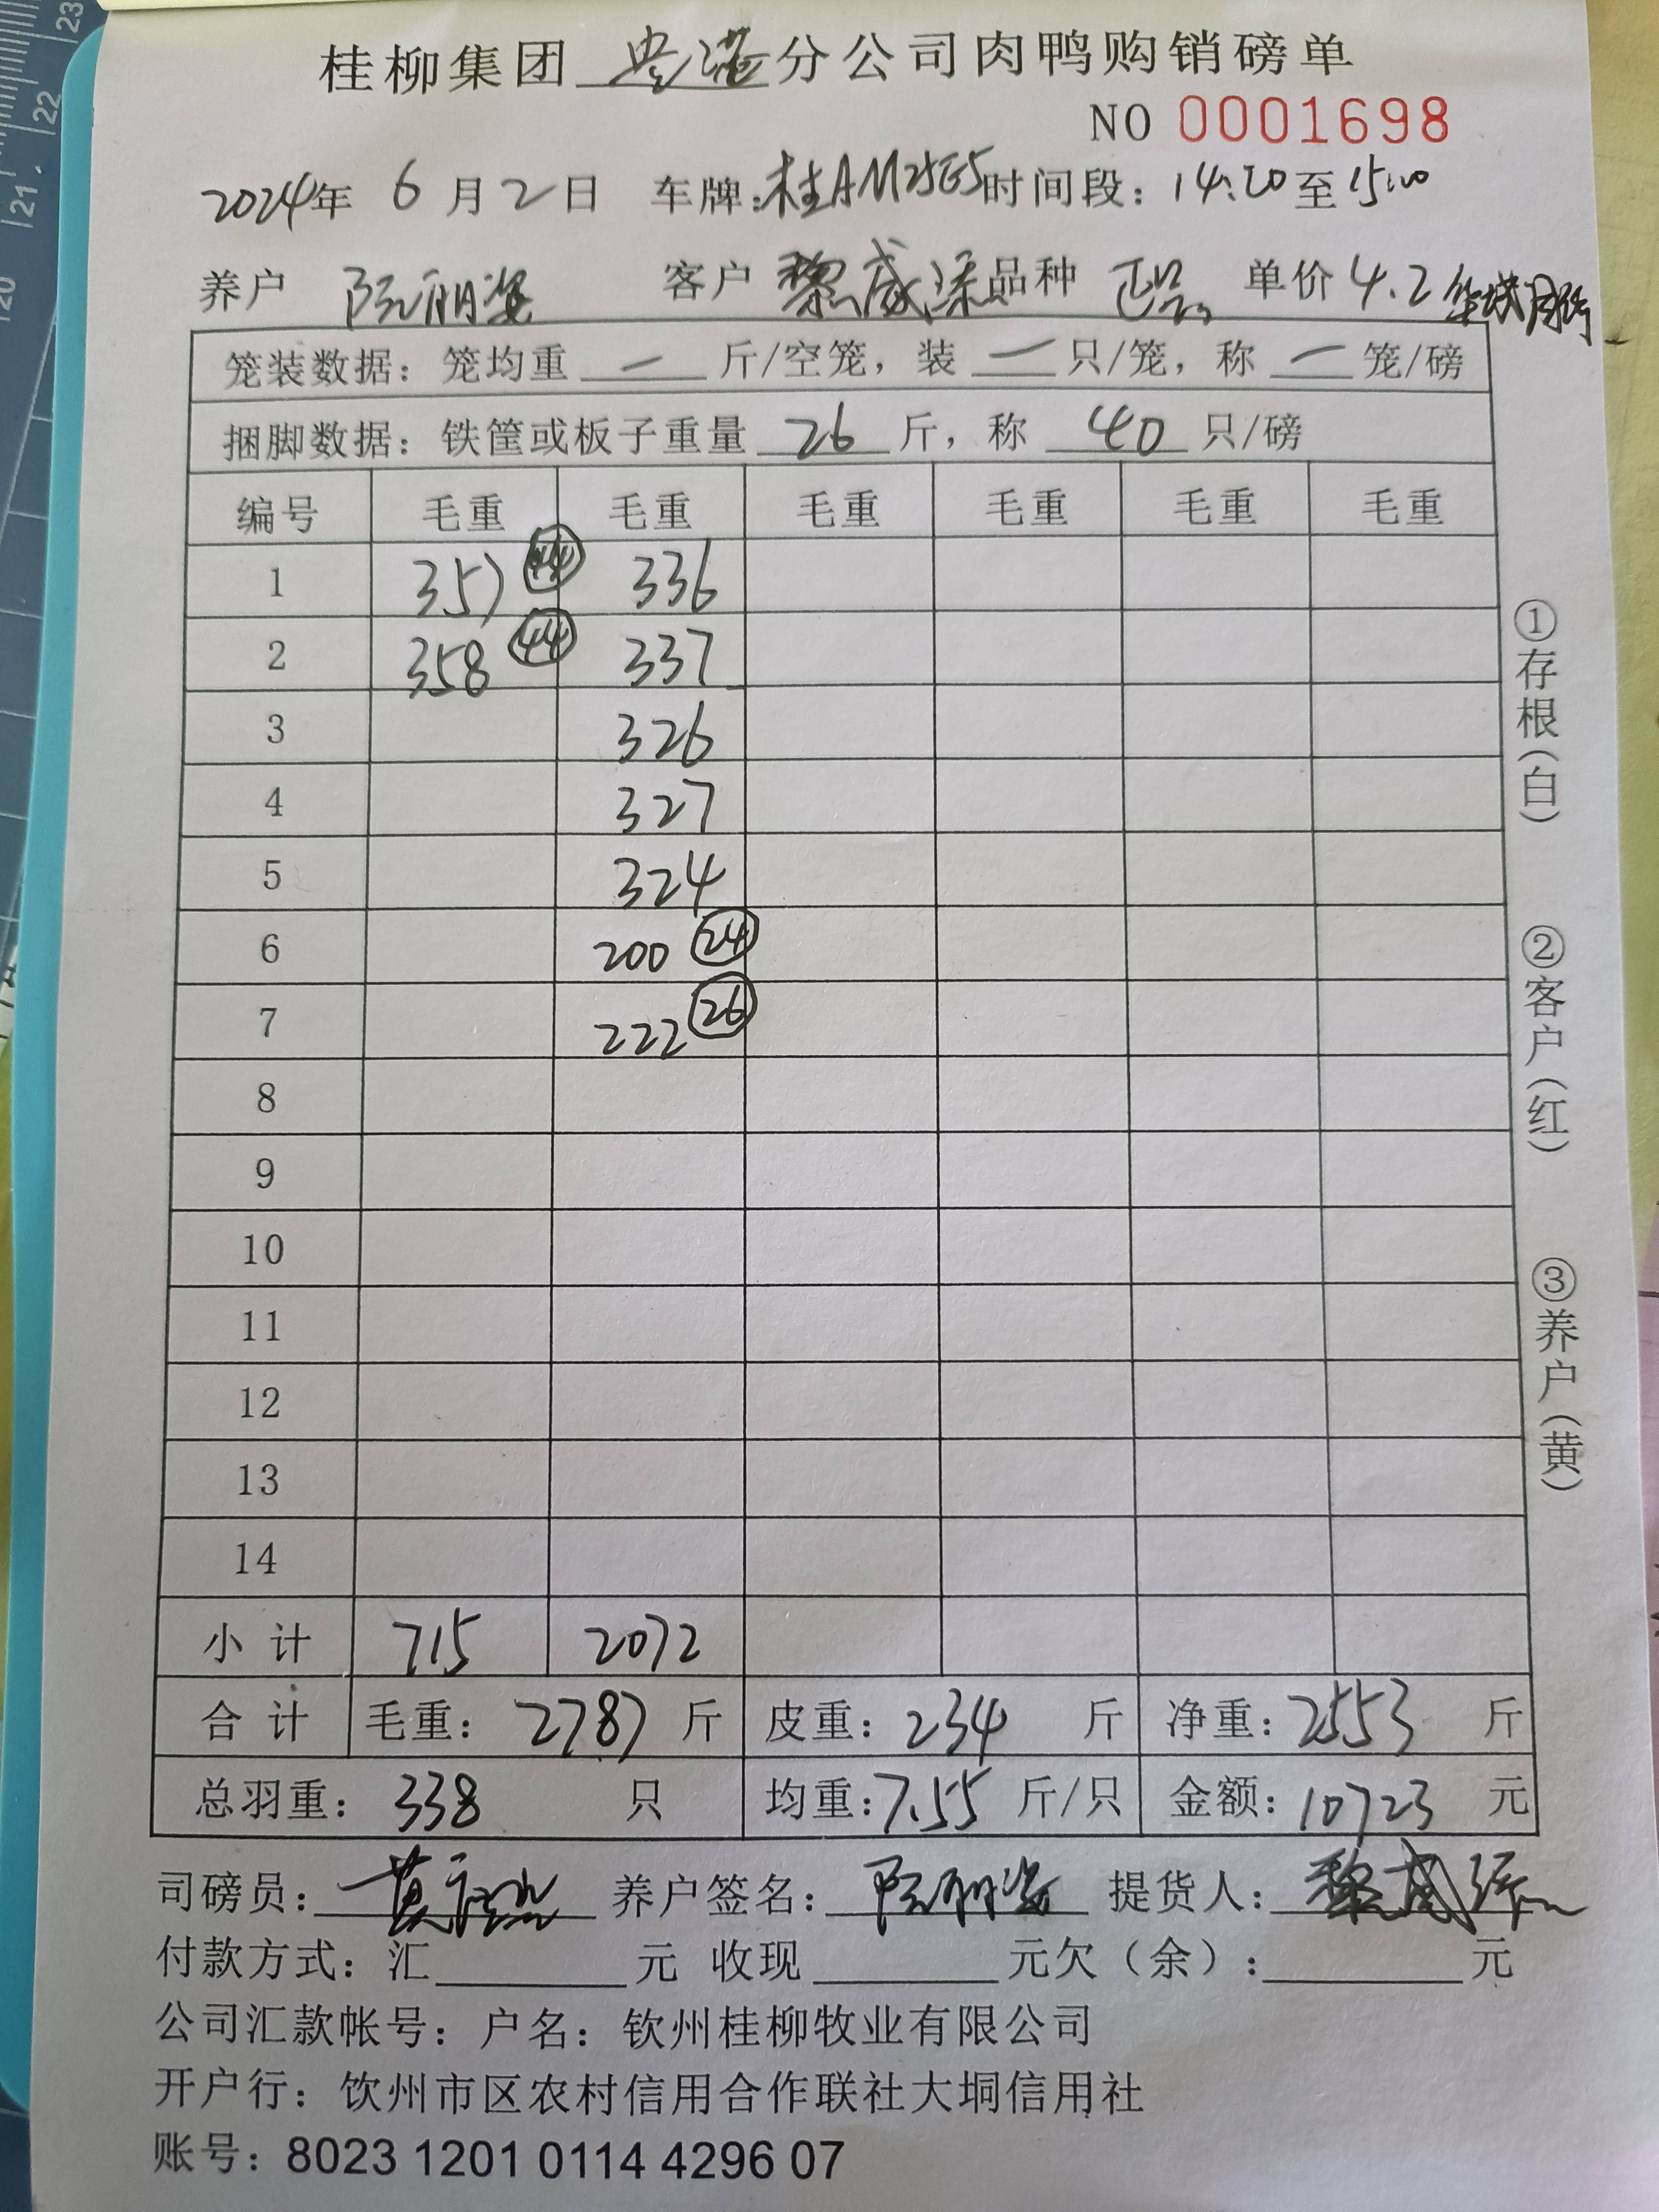 桂柳集团 贵港 分公司肉鸭购销磅单
NO 0001698
2024年 6 月 2 日 车牌:桂AM25E5 时间段: 14:20 至 15:00
养户 阮丽姿 客户 黎威添 品种 正品 单价 4.2
笼装数据: 笼均重 一 斤/空笼, 装 一 只/笼, 称 一 笼/磅
捆脚数据: 铁筐或板子重量 26 斤, 称 40 只/磅
编号 毛重 毛重 毛重 毛重 毛重 毛重
1 357 44 336
2 358 44 337
3 326
4 327
5 324
6 200 24
7 222 26
8
9
10
11
12
13
14
小 计 715 2072
合 计 毛重: 2787 斤 皮重: 234 斤 净重: 2553 斤
总羽重: 338 只 均重: 7.55 斤/只 金额: 10723 元
司磅员: 养户签名: 阮丽姿 提货人: 黎威添
付款方式: 汇 元 收现 元欠(余): 元
公司汇款帐号: 户名: 钦州桂柳牧业有限公司
开户行: 饮州市区农村信用合作联社大垌信用社
账号: 8023 1201 0114 4296 07
①存根(白)
②客户(红)
③养户(黄)
23
22
21
20